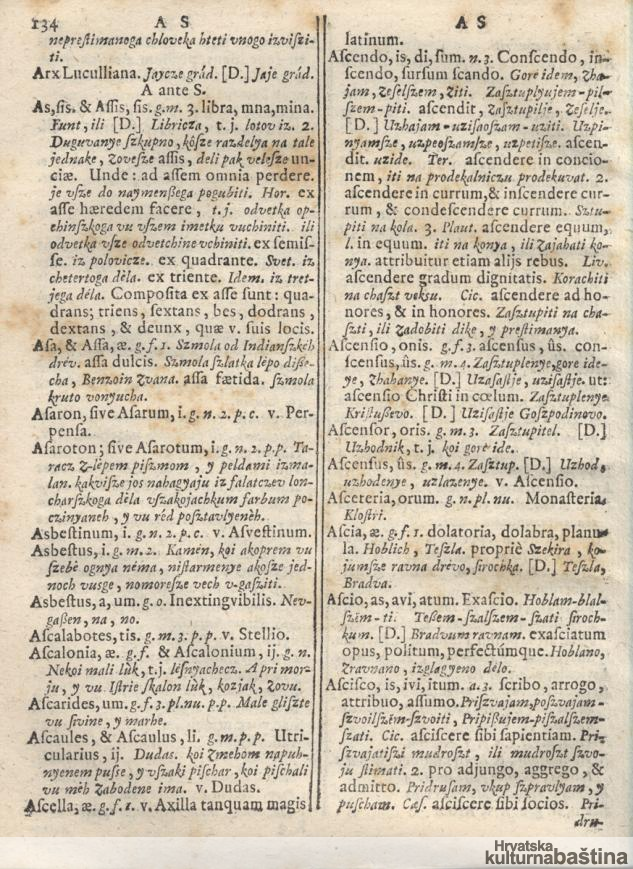 134 A S
neprestimanoga chloveka hteti vnogo izvisziti-
ti.
Arx Luculliana. Jaycze grád. [D.] Jaje grád.
A ante S.
As, sis. & Assis, sis. g. m. 3. libra, mna, mina.
Funt, ili [D.] Libricza, t. j. lotov iz. 2.
Duguvanye szkupno, kôsze razdelya na tale
jednake, zovesze assis, deli pak velesze un-
ciæ. Unde: ad assem omnia perdere.
je vsze do naymenßega pogubiti. Hor. ex
asse hæredem facere, t. j. odvetka op-
chinszkoga vu vszem imetku vuchiniti. ili
odvetka vsze odvetchine vchiniti. ex semis-
se. iz polovicze. ex quadrante. Svet. iz
chetertoga dèla. ex triente. Idem. iz tret-
jega déla. Composita ex asse sunt: qua-
drans; triens, sextans, bes, dodrans,
dextans, & deunx, quæ v. suis locis.
Asa, & Assa, æ. g. f. 1. Szmola od Indianszkeh
drév. assa dulcis. Szmola szlatka lèpo diße-
cha, Benzoin zvana. assa fætida. szmola
kruto vonyucha.
Asaron, sive Asarum, i. g. n. 2. p. c. v. Per-
pensa.
Asaroton; sive Asarotum, i. g. n. 2. p. p. Ta-
racz z-lèpem piszmom, y peldami izma-
lan. kakvisze jos nahagyaju iz falatczev lon-
charszkoga dèla vszakojachkum farbum po-
czinyaneh, y vu réd posztavlyenèh.
Asbestinum, i. g. n. 2. p. c. v. Asvestinum.
Asbestus, i. g. m. 2. Kamén, koi akoprem vu
szebè ognya néma, nistarmenye akosze jed-
noch vusge, nomoresze vech v-gasziti.
Asbestus, a, um. g. o. Inextingvibilis. Nev-
gaßen, na, no.
Ascalabotes, tis. g. m. 3. p. p. v. Stellio.
Ascalonia, æ. g. f. & Ascalonium, ij. g. n.
Nekoi mali lùk, t. j. lèsnyachecz. A pri mor-
ju, y vu Istrie skalon lùk, kozjak, zovu.
Ascarides, um. g. f. 3. pl. nu. p. p. Male gliszte
vu svine, y marhe.
Ascaules, & Ascaulus, li. g. m. p. p. Utri-
cularius, ij. Dudas. koi zmehom napuh-
nyenem pusse, y vszaki pischar, koi pischali
vu mèh zabodene ima. v. Dudas.
Ascella, æ. g. f. 1. v. Axilla tanquam magis
A S
latinum.
Ascendo, is, di, sum. n. 3. Conscendo, in-
scendo, sursum scando. Gore idem, zha-
jam, zeselszem, ziti. Zasztuplyujem-pil-
szem-piti. ascendit, zasztupilje, zeselje.
[D.] Uzhajam-uzisaoszam-uziti. Uzpi-
nyamsze, uzpeoszamsze, uzpetisze. ascen-
dit. uzide. Ter. ascendere in concio-
nem, iti na prodekalniczu prodekuvat. 2.
ascendere in currum, & inscendere cur-
rum, & condescendere currum. Sztu-
piti na kola. 3. Plaut. ascendere equum,
l. in equum. iti na konya, ili zajahati ko-
nya. attribuitur etiam alijs rebus. Liv.
ascendere gradum dignitatis. Korachiti
na chaszt veksu. Cic. ascendere ad ho-
nores, & in honores. Zasztupiti na cha-
szti, ili zadobiti dike, y prestimanya.
Ascensio, onis. g. f. 3. ascensus, ûs. con-
scensus, ûs. g. m. 4. Zasztuplenye, gore ide-
ye, zhahanye. [D.] Uzasastje, uzisastje. ut:
ascensio Christi in cœlum. Zasztuplenye
Kristußevo. [D.] Uzisastje Goszpodinovo.
Ascensor, oris. g. m. 3. Zasztupitel. [D.]
Uzhodnik, t. j. koi gore ide.
Ascensus, ûs. g. m. 4. Zasztup. [D.] Uzhod,
uzhodenye, uzlazenye. v. Ascensio.
Asceteria, orum. g. n. pl. nu. Monasteria.
Klostri.
Ascia, æ. g. f. 1. dolatoria, dolabra, planu-
la. Hoblich, Teszla. propriè Szekira, ko-
jumsze ravna drévo, sirochka. [D.] Teszla,
Bradva.
Ascio, as, avi, atum. Exascio. Hoblam-blal-
szèm-ti. Teßem-szalszem-szati siroch-
kum. [D.] Bradvum ravnam. exasciatum
opus, politum, perfectúmque. Hoblano,
zravnano, izglagyeno dèlo.
Ascisco, is, ivi, itum. a. 3. scribo, arrogo,
attribuo, assumo. Priszvajam, poszvajam-
szvoilszèm-szvoiti, Pripißujem-piszalszem-
szati. Cic. asciscere sibi sapientiam. Pri-
szvajatiszi mudroszt, ili mudroszt szvo-
ju stimati. 2. pro adjungo, aggrego, &
admitto. Pridrusam, vkup szpravlyam, y
puscham. Cæs. asciscere sibi socios. Pri-
dru-
Hrvatska
kulturnabaština